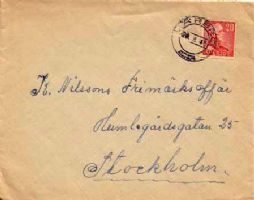 20
K. Nilssons Frimärksaffär
Humlegårdsgatan 25
Stockholm.